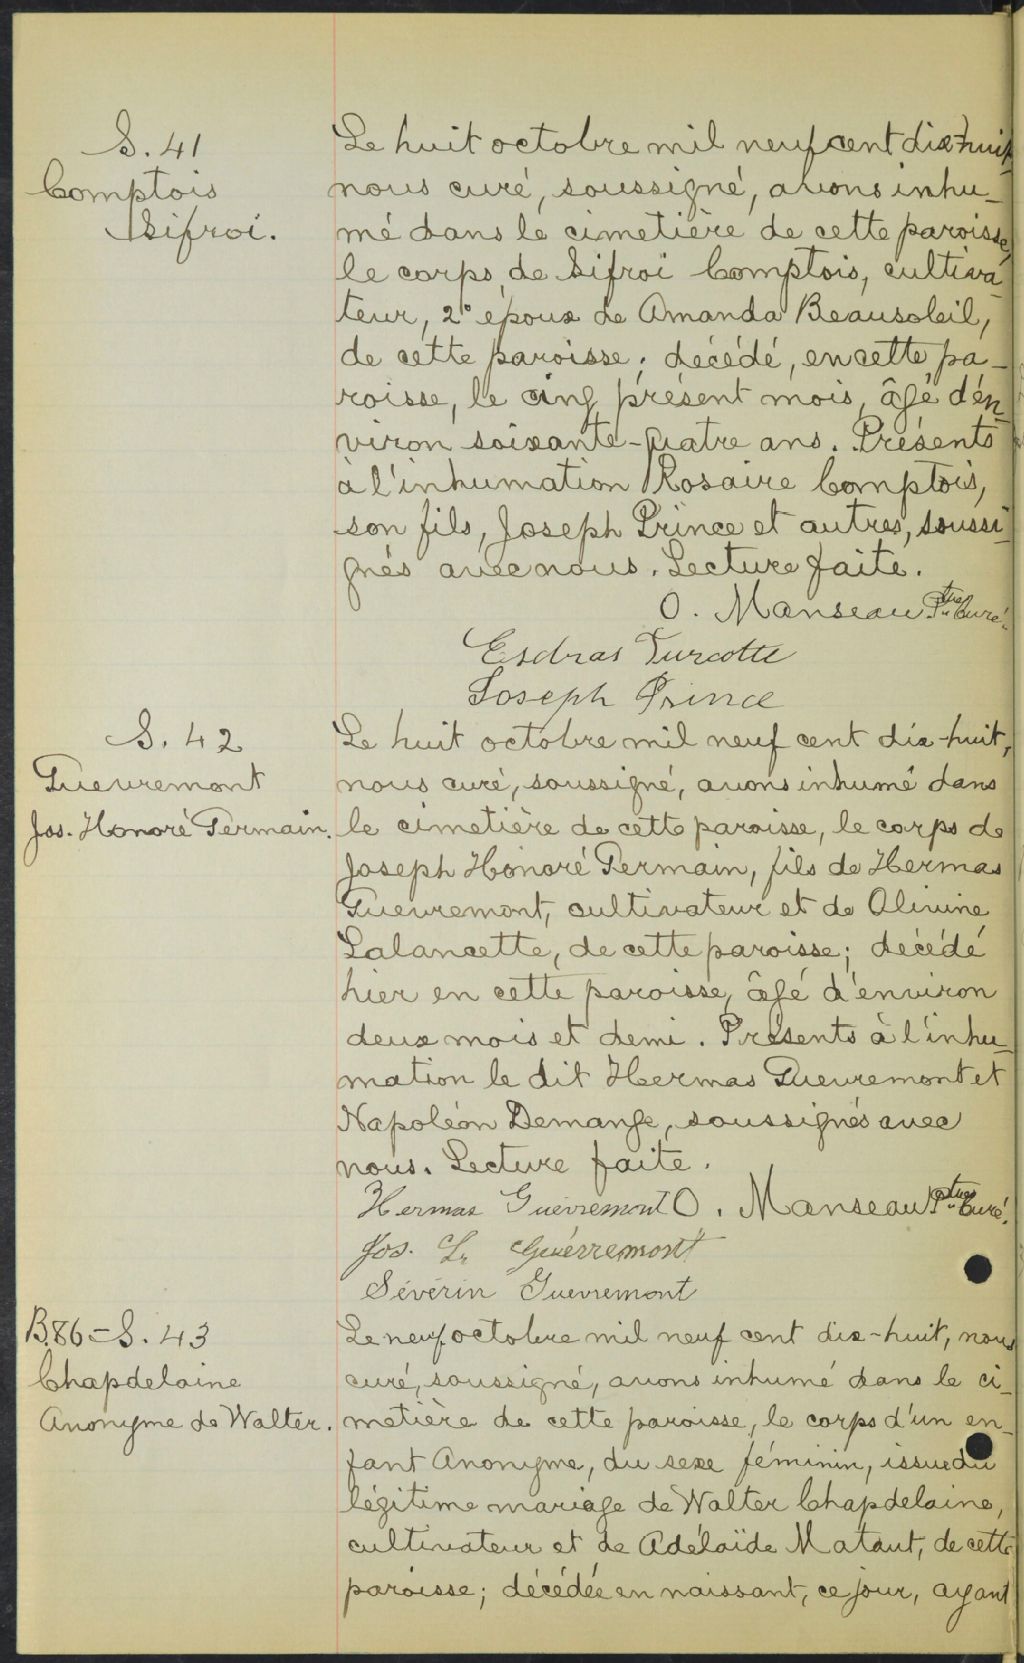 S. 41
Comptois
Sifroi.
Le huit octobre mil neuf cent dix-huit
nous curé, soussigné, avons inhu-
mé dans le cimetière de cette paroisse,
le corps de Sifroi Comptois, cultiva-
teur, 2° époux de Amanda Beausoleil,
de cette paroisse; décédé, en cette pa-
roisse, le cinq présent mois, âgé d'en-
viron soixante-quatre ans. Présents
à l'inhumation Rosaire Comptois,
son fils, Joseph Prince et autres, soussi-
gnés avec nous. Lecture faite.
O. Manseau Ptre Curé.
Esdras Turcotte
Joseph Prince
S. 42
Guevremont
Jos. Honoré Germain.
Le huit octobre mil neuf cent dix-huit,
nous curé, soussigné, avons inhumé dans
le cimetière de cette paroisse, le corps de
Joseph Honoré Germain, fils de Hermas
Guevremont, cultivateur et de Olivine
Lalancette, de cette paroisse; décédé
hier en cette paroisse, âgé d'environ
deux mois et demi. Présents à l'inhu-
mation le dit Hermas Guevremont et
Napoléon Demange, soussignés avec
nous. Lecture faite.
Hermas Guévremont O. Manseau Ptre Curé.
Jos. L. Guévremont
Sévérin Guevremont
B.86-S. 43
Chapdelaine
Anonyme de Walter.
Le neuf octobre mil neuf cent dix-huit, nous
curé, soussigné, avons inhumé dans le ci-
metière de cette paroisse, le corps d'un en-
fant Anonyme, du sexe féminin, issue du
légitime mariage de Walter Chapdelaine,
cultivateur et de Adélaïde Mataut, de cette
paroisse; décédée en naissant, ce jour, ayant